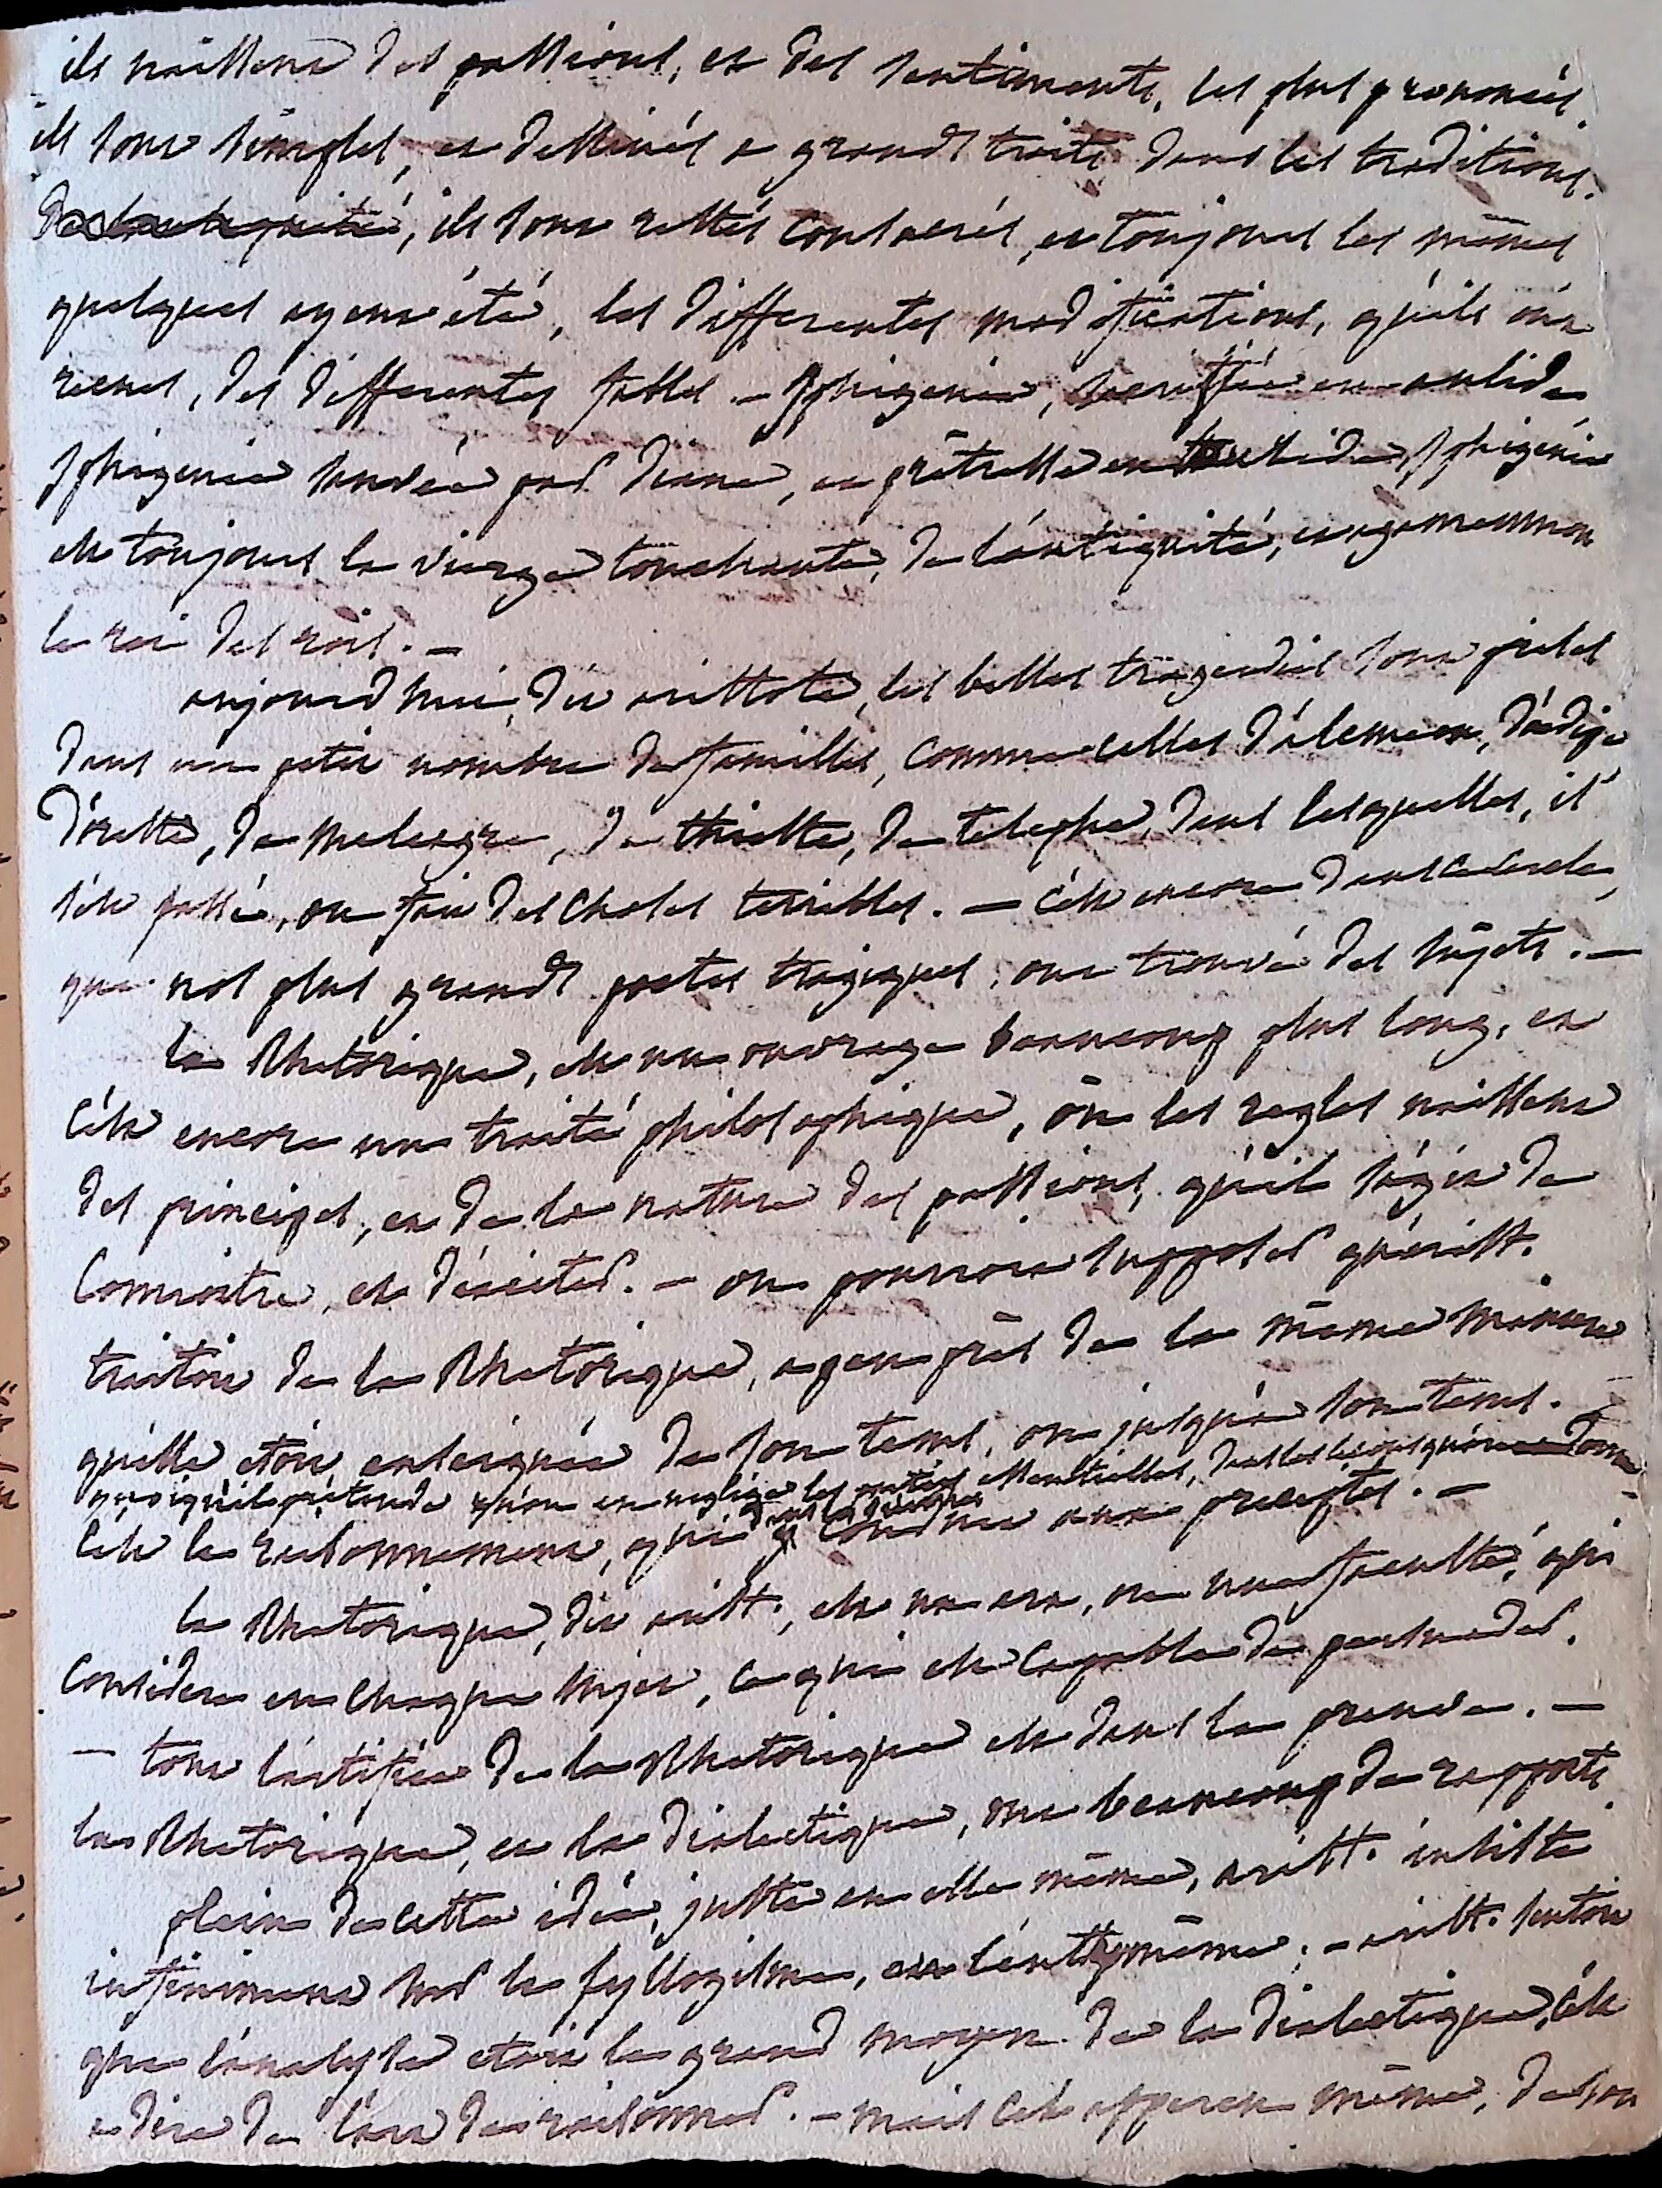 ils naissent des passions, et des sentiments, les plus prononcés.
ils sont simples, et dessinés a grands traits dans les traditions.
ils sont restés consacrés, et toujours les mêmes
quelques ayent été, les differentes modifications, qu'ils ont
recues, des differentes fables. - Iphigenie, sacrifiée en aulide
Iphigenie sauvée par diane, et prêtresse en Iphigénie
est toujours la vierge touchante, de l'antiquité, et agamemnon
le roi des rois. -
aujourd'hui, dit aristote, les belles tragedies sont prises
dans un petit nombre de familles, comme celles d'alcmeon, d'oedipe
d'oreste, de meleagre, de thieste, de telephe, dans lesquelles, il
s'est passé, ou fait des choses terribles. - c'est encore dans
que nos plus grands poetes tragiques, ont trouvé des sujets. -
la Rhetorique, est un ouvrage beaucoup plus long, et
c'est encore un traité philosophique, ou les regles naissent
des principes, et de la nature des passions, qu'il s'agit de
connoitre, et d'exciter. - on pourroit supposer qu'arist.
traitoit de la Rhetorique, a peu près de la même maniere
qu'elle etoit enseignée de son tems, ou jusqu'a son tems.
quoiqu'il pretende qu'on en neglige les parties essentielles, dans les lecons qu'on en donne
c'est le raisonnement, qui conduit aux preceptes. -
la Rhetorique, dit arist., est un art, ou une faculté, qui
considere en chaque sujet, ce qui est capable de persuader.
- tout l'artifice de la Rhetorique est dans la preuve. -
la Rhetorique, et la dialectique, ont beaucoup de rapports
plein de cette idée, juste en elle même, arist. insiste
infiniment sur le syllogisme, et l'enthymême; - arist. sentoit
que l'analyse etoit le grand moyen de la dialectique, c'est
a dire de l'art de raisonner. - mais c'est apperçu même, de son